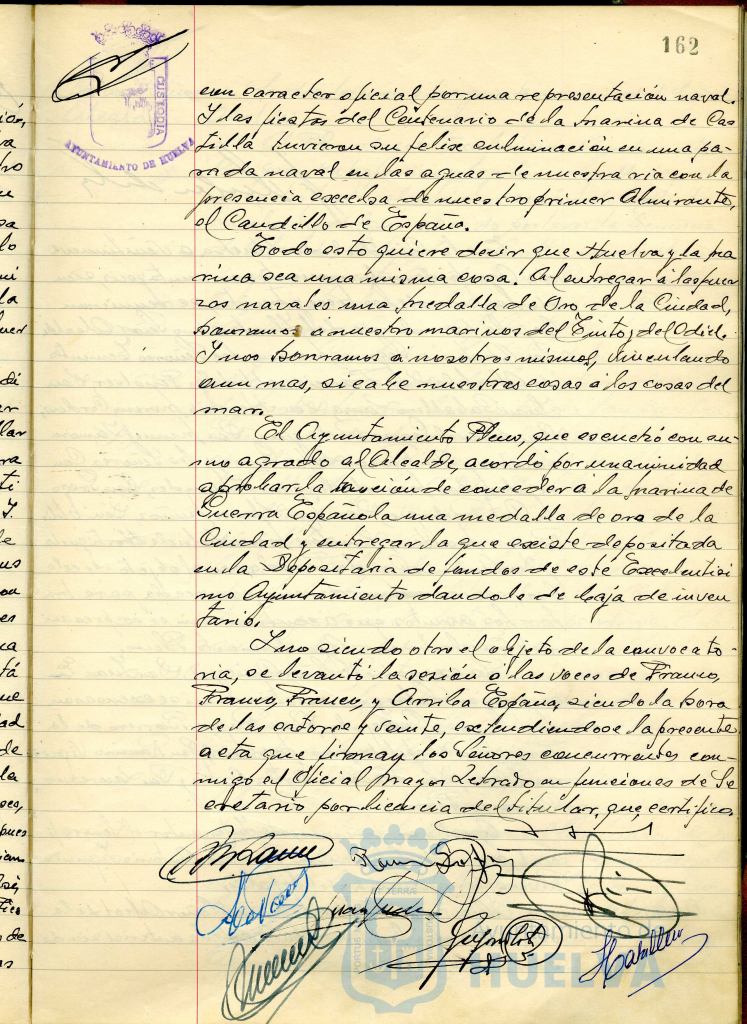 162
CUSTODIA
AYUNTAMIENTO DE HUELVA
con caracter oficial por una representación naval.
Y las fiestas del Centenario de la Marina de Cas
tilla tuvieron su felix culminación en una pa-
rada naval en las aguas de nuestra ria con la
presencia excelsa de nuestro primer Almirante,
el Caudillo de España.
Todo esto quiere decir que Huelva y la Ma
rina sea una misma cosa. Al entregar á las fuer
zas navales una Medalla de Oro de la Ciudad,
honramos á nuestro marinos del Tinto y del Odiel.
Y nos honramos á nosotros mismos, vinculando
aun mas, si cabe nuestras cosas á las cosas del
mar.
El Ayuntamiento Pleno, que escuchó con su-
mo agrado al Alcalde, acordó por unanimidad
aprobar la moción de conceder á la Marina de
Guerra Española una medalla de oro de la
Ciudad y entregar la que existe depositada
en la Depositaria de fondos de este Excelentisi
mo Ayuntamiento dandole de baja de inven
tario.
Y no siendo otro el objeto de la convocato-
ria, se levantó la sesión á las voces de Franco,
Franco, Franco, y Arriba España, siendo la hora
de las catorce y veinte, extendiendose la presente
acta que firman los Señores concurrentes con-
migo el Oficial Mayor Letrado en funciones de Se
cretario por licencia del titular, que, certifico.
HUELVA